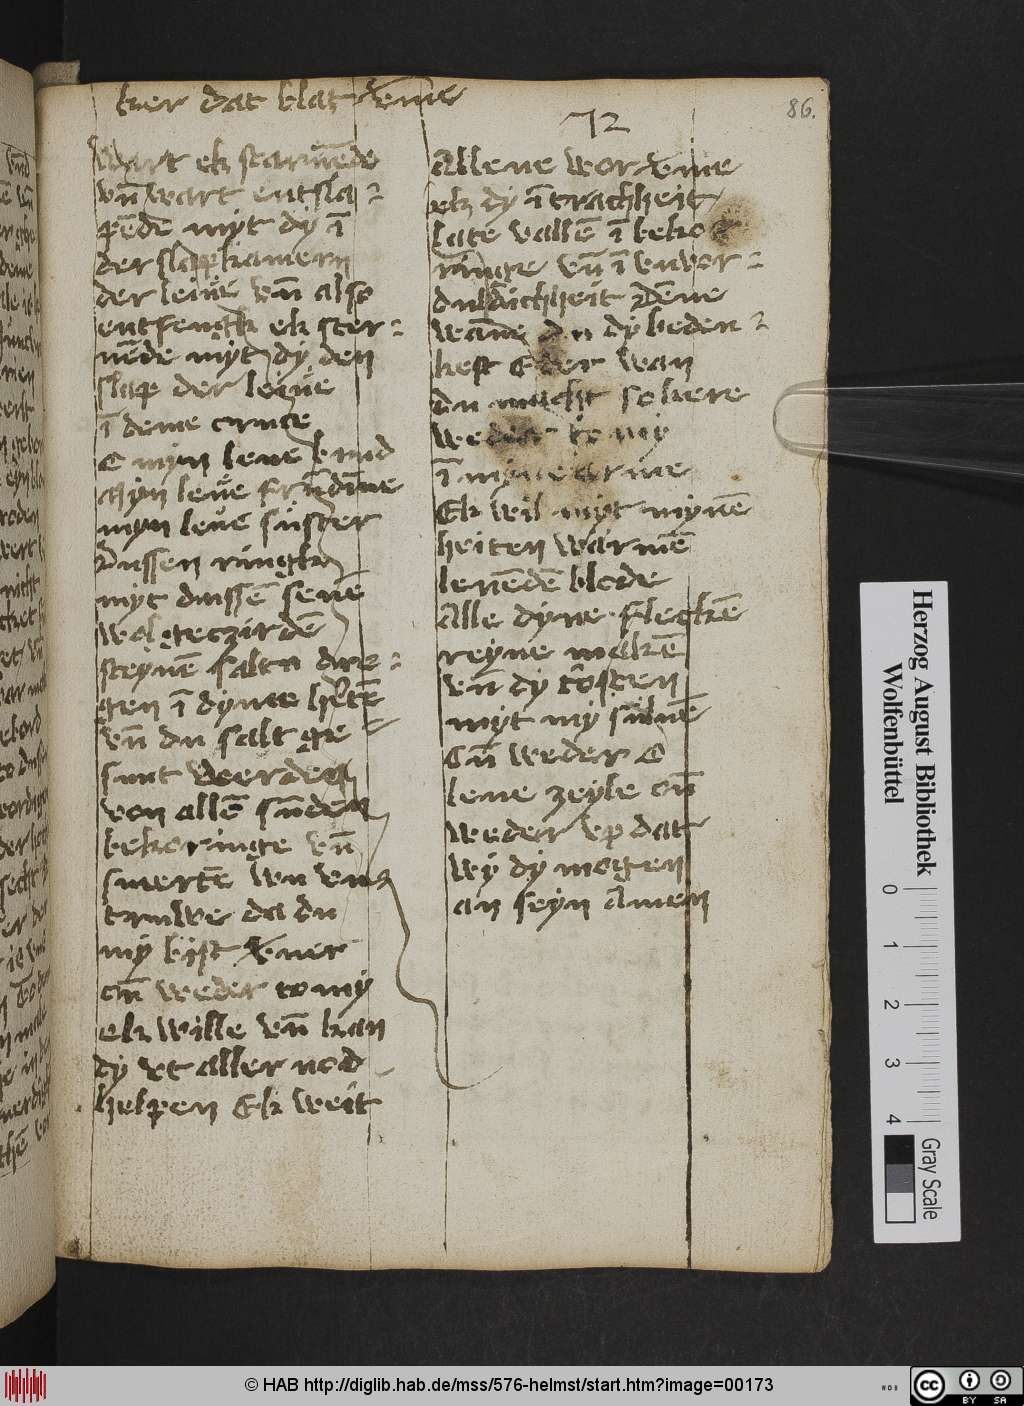 ker dat blat vme
72
86.
Wart ek staruēde
vn̄ wart entsla⸗
pēde myt dy ī
der slapkamern
der leiue vn̄ also
entfengk ek ster⸗
uēde myt dy den
slap der leiue
ī deme cruce
O myn leue kind
Myn leue frūdīne
myn leue suster
Dussen ringk
myt dussē seuē
wolgeczirdē
steynē saltu dre⸗
gen ī dyme h'tē
vn̄ du salt ge
sunt werden
von allē sūden
bekoringe vn̄
smertē
truwe da du
my bist
Cū weder to my
Ek wille vn̄ kan
dy vt aller nod
helpen Ek weit
Allene wor vme
ek dy ī tracheit
late vallē ī beko
ringe vn̄ ī vnvor⸗
duldicheit Dēne
wāne du dy beden⸗
kest Eder wan
du macht so kere
weder to my
ī myne arme
Ek wil myt mynē
heiten warmē
leuēdē blode
Alle dyne fleckē
reyne makē
vn̄ dy trosten
myt my suluē
Cū weder O
leue zeyle cū
weder vp dat
wy dy mogen
an seyn Amen
Herzog August Bibliothek
Wolfenbüttel
0 1 2 3 4
Gray Scale
© HAB http://diglib.hab.de/mss/576-helmst/start.htm?image=00173
WDB
cc BY SA